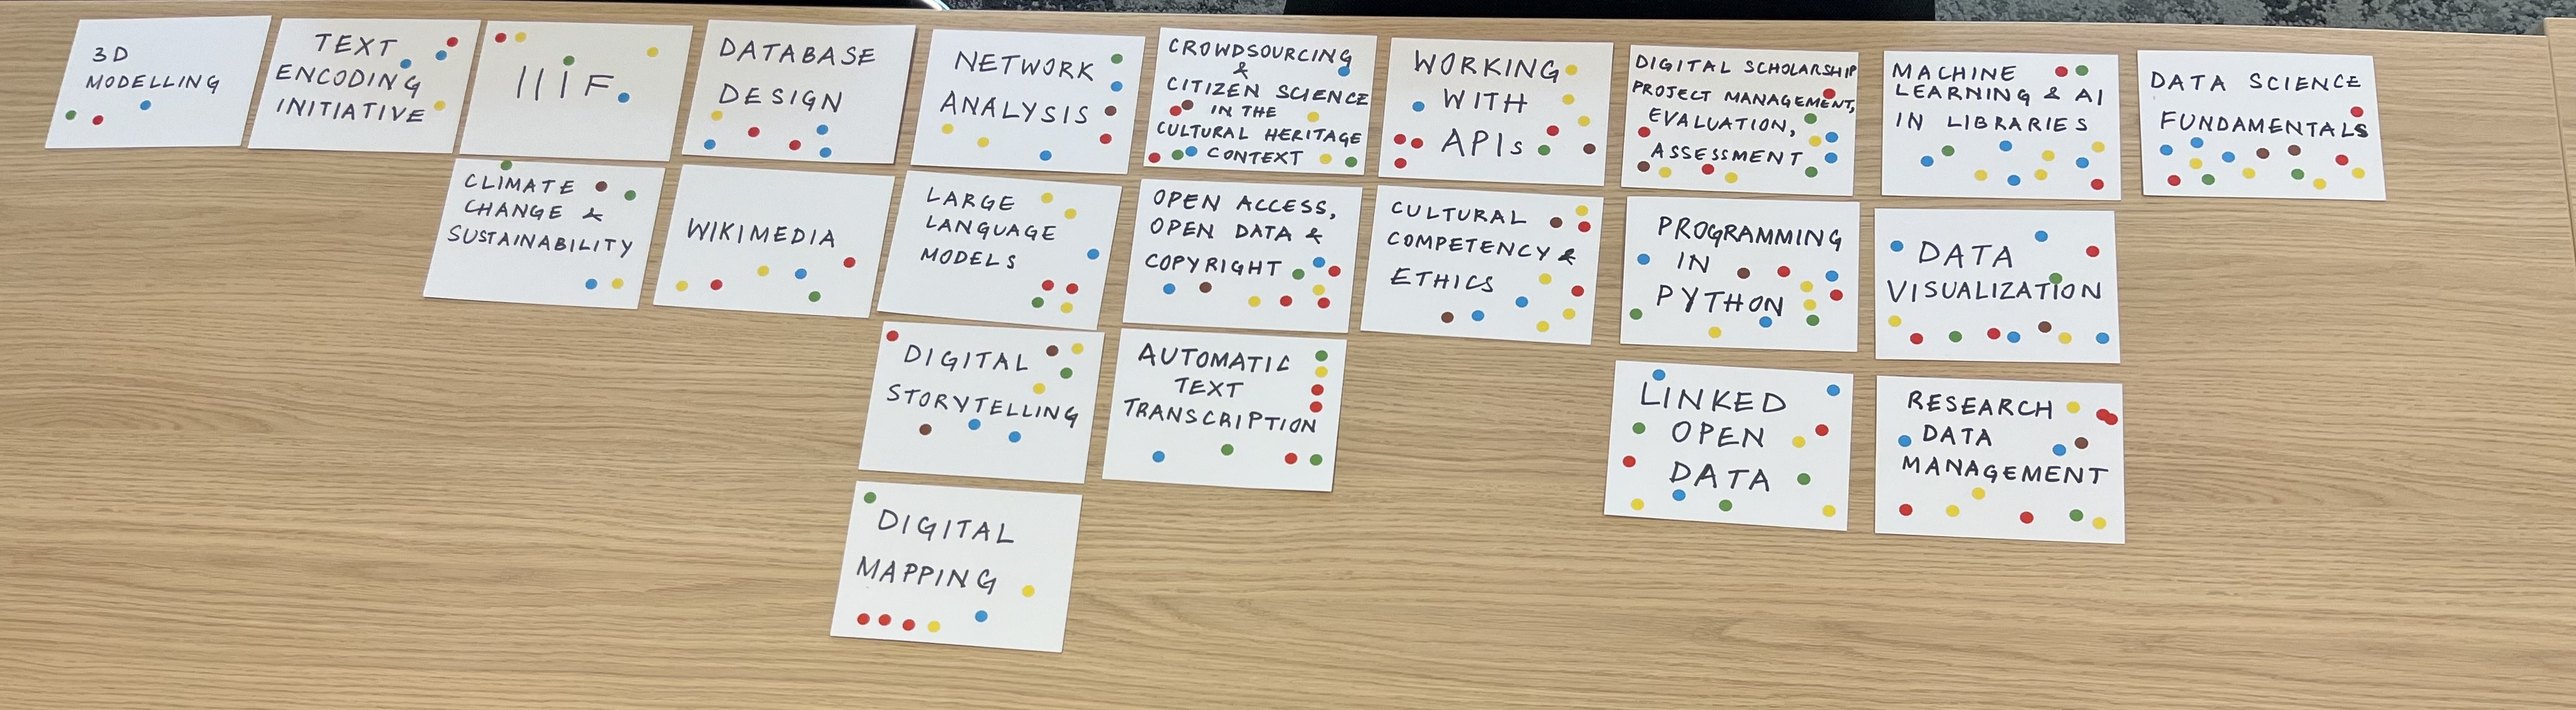 3D
MODELLING
TEXT
ENCODING
INITIATIVE
IIIF
DATABASE
DESIGN
NETWORK
ANALYSIS
CROWDSOURCING
&
CITIZEN SCIENCE
IN THE
CULTURAL HERITAGE
CONTEXT
WORKING
WITH
APIs
DIGITAL SCHOLARSHIP
PROJECT MANAGEMENT,
EVALUATION,
ASSESSMENT
MACHINE
LEARNING & AI
IN LIBRARIES
DATA SCIENCE
FUNDAMENTALS
CLIMATE
CHANGE &
SUSTAINABILITY
WIKIMEDIA
LARGE
LANGUAGE
MODELS
OPEN ACCESS,
OPEN DATA &
COPYRIGHT
CULTURAL
COMPETENCY &
ETHICS
PROGRAMMING
IN
PYTHON
DATA
VISUALIZATION
DIGITAL
STORYTELLING
AUTOMATIC
TEXT
TRANSCRIPTION
LINKED
OPEN
DATA
RESEARCH
DATA
MANAGEMENT
DIGITAL
MAPPING